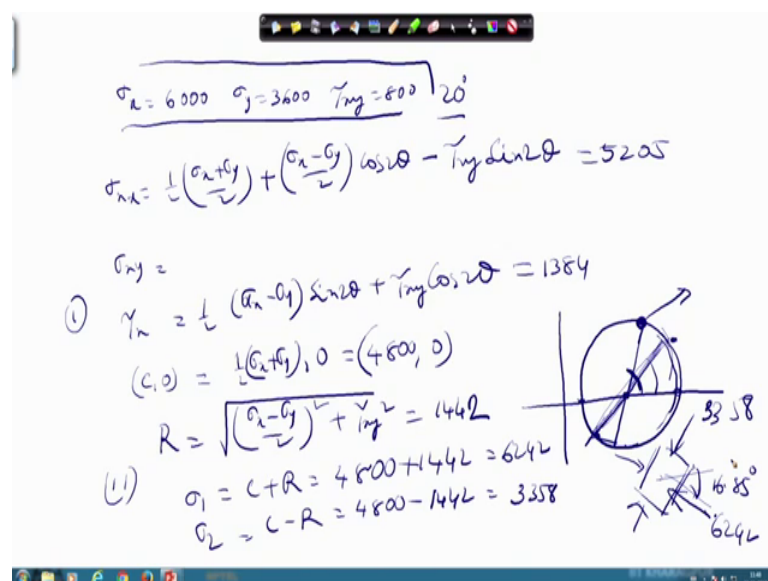 σx = 6000 σy = 3600 τxy = 800 20°
σnx = 1/2 (σx+σy/2) + (σx-σy/2) cos2θ - τxy sin2θ = 5205
σny =
(i) τn = 1/2 (σx-σy) sin2θ + τxy cos2θ = 1384
(C,0) = 1/2(σx+σy), 0 = (4800, 0)
R = √((σx-σy/2)² + τxy²) = 1442
(ii) σ1 = C+R = 4800+1442 = 6242
σ2 = C-R = 4800-1442 = 3358
3358
16.85°
6242